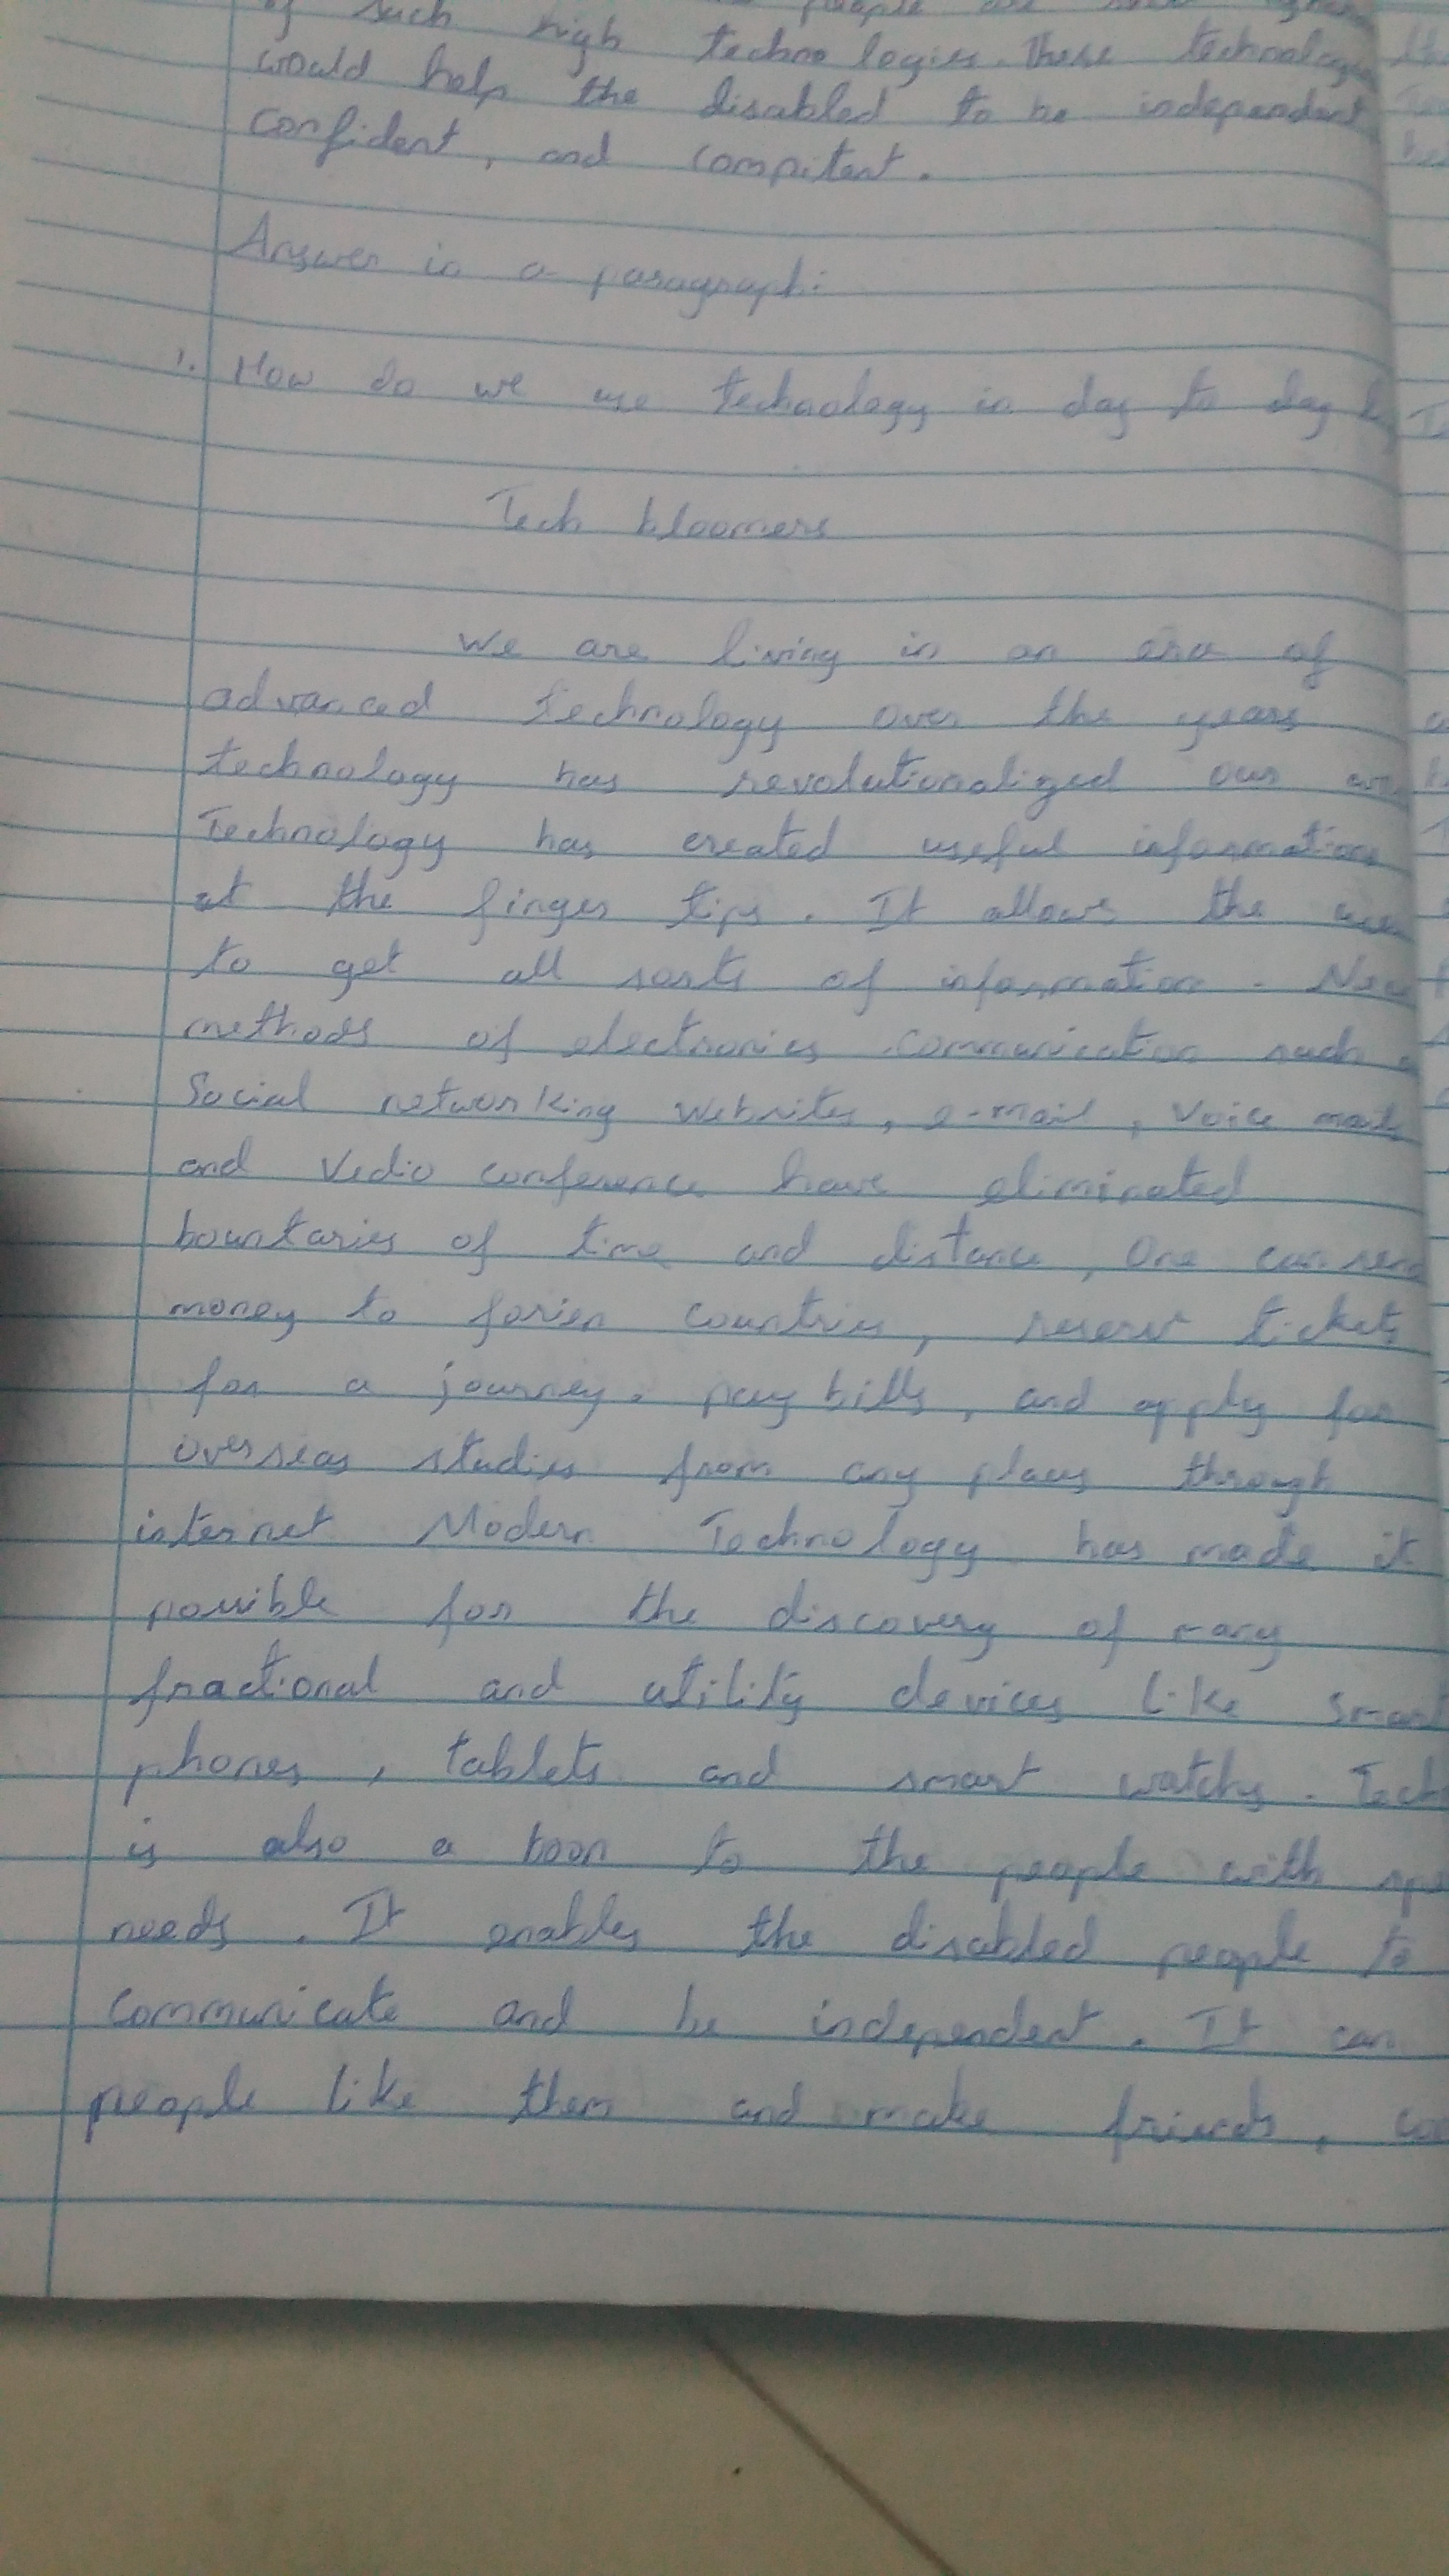 of such high technologies. These technologies
would help the disabled to be independent
confident, and compitent.
Answer in a paragraph:
1. How do we use technology in day to day
Tech bloomers
We are living in an era of
advanced technology over the years
technology has revolutionalized our
Technology has created useful informations
at the finger tips. It allows the
to get all sorts of information. New
methods of electronics communication such
Social networking websites, e-mail, voice mail
and vedio conference have eliminated
bountaries of time and distance, One can send
money to forien countries, reserve tickets
for a journey, pay bills, and apply for
overseas studies from any places through
internet Modern Technology has made it
possible for the discovery of many
fractional and utility devices like smart
phones, tablets and smart watchs. Tech
is also a boon to the people with spe
needs. It enables the disabled people to
communicate and be independent. It can
people like them and make friends,